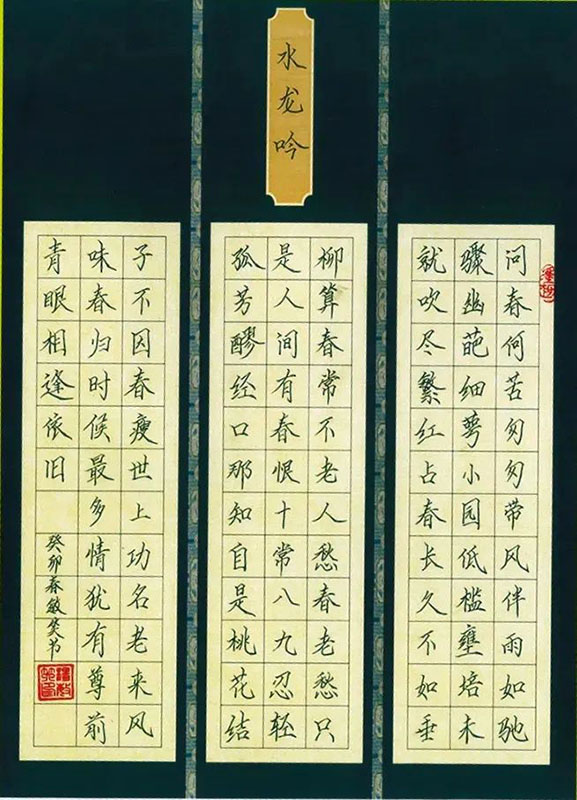 水龙吟
问春何苦匆匆带风伴雨如驰
骤幽葩细萼小园低槛壅培未
就吹尽繁红占春长久不如垂
柳算春常不老人愁春老愁只
是人间有春恨十常八九忍轻
孤芳醪经口那知自是桃花结
子不因春瘦世上功名老来风
味春归时候最多情犹有尊前
青眼相逢依旧
癸卯春敏笑书